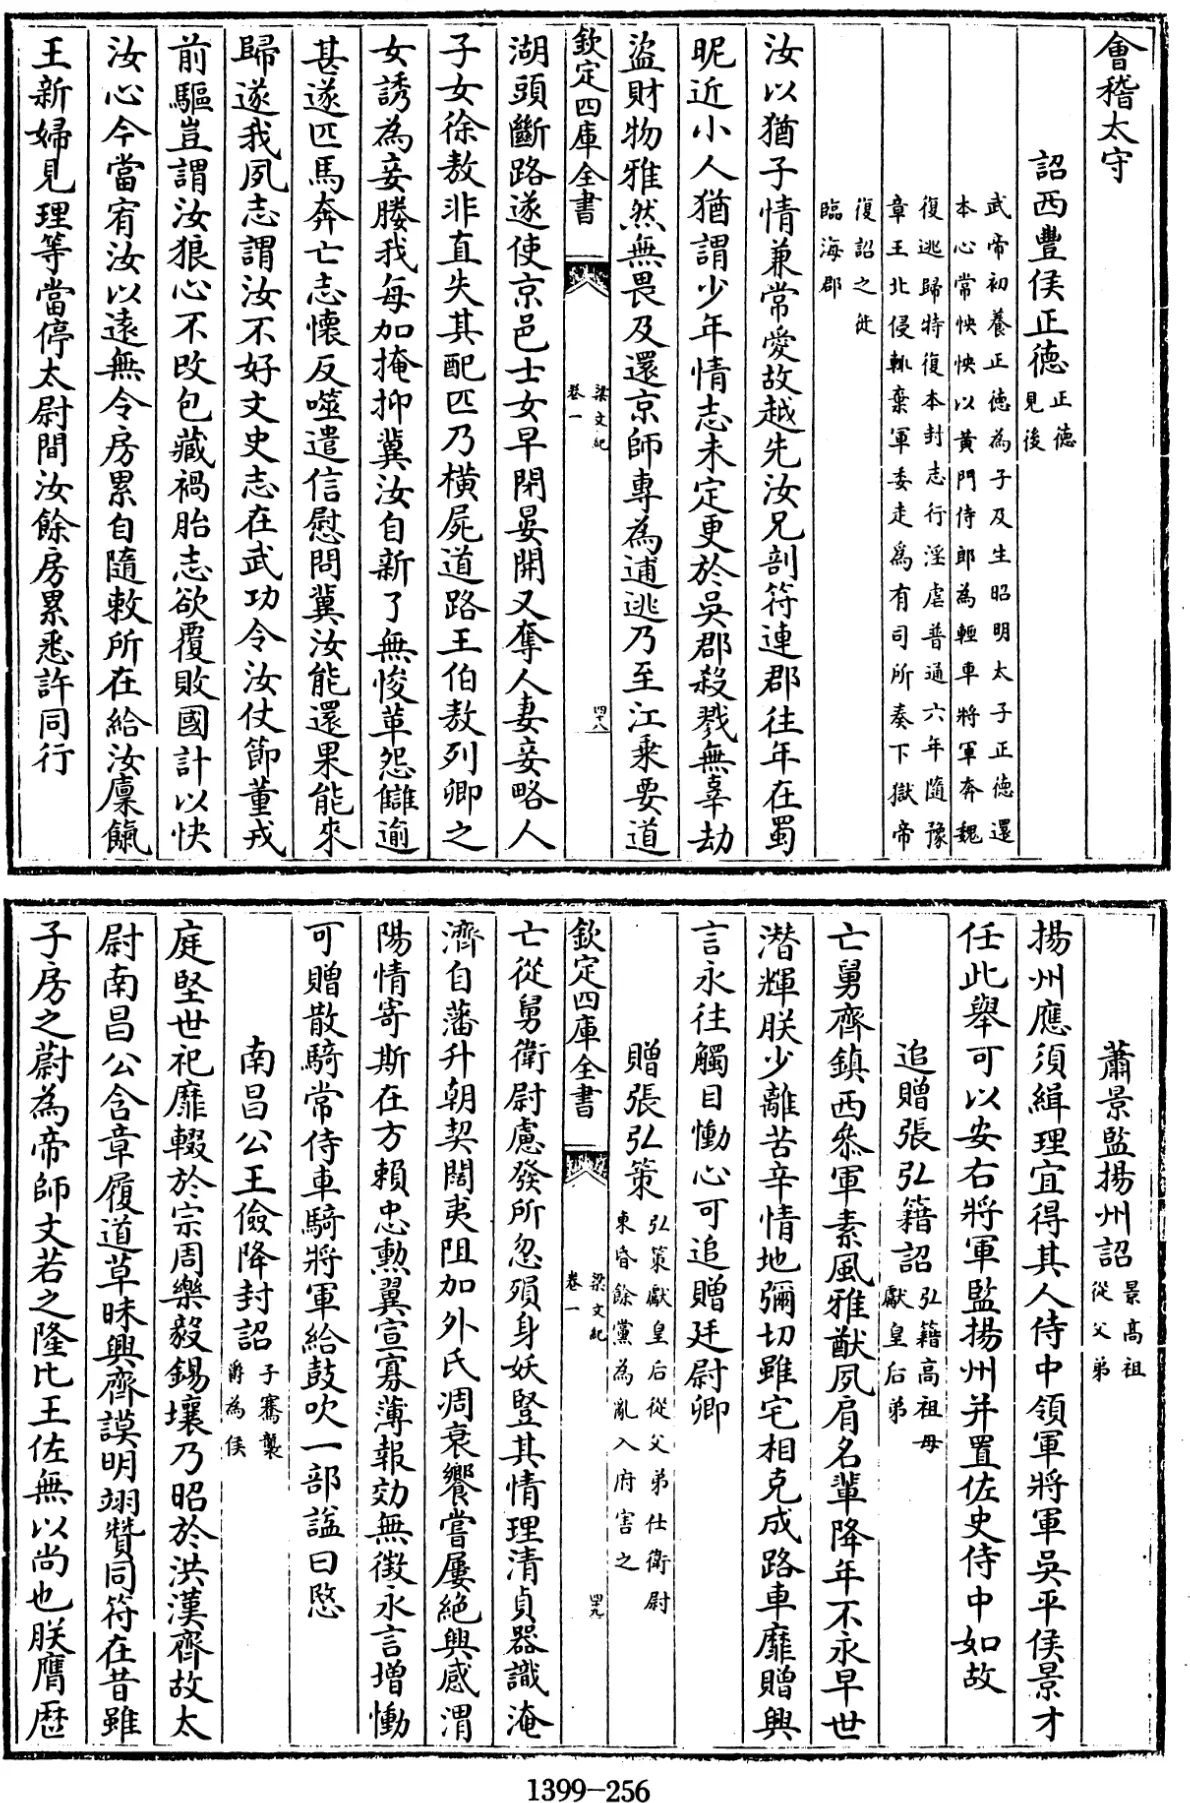 會稽太守
詔西豐侯正德正德
見後
武帝初養正德為子及生昭明太子正德還
本心常怏怏以黃門侍郎為輕車將軍奔魏
復逃歸特復本封志行淫虐普通六年隨豫
章王北侵輒棄軍委走爲有司所奏下獄帝
復詔之徙
臨海郡
汝以猶子情兼常愛故越先汝兄剖符連郡往年在蜀
昵近小人猶謂少年情志未定更於吳郡殺戮無辜劫
盜財物雅然無畏及還京師專為逋逃乃至江乘要道
欽定四庫全書
梁文紀
卷一
四十八
湖頭斷路遂使京邑士女早閉晏開又奪人妻妾略人
子女徐敖非直失其配匹乃橫屍道路王伯敖列卿之
女誘為妾媵我每加掩抑冀汝自新了無悛革怨讎逾
甚遂匹馬奔亡志懷反噬遣信慰問冀汝能還果能來
歸遂我夙志謂汝不好文史志在武功令汝仗節董戎
前驅豈謂汝狼心不改包藏禍胎志欲覆敗國計以快
汝心今當宥汝以遠無令房累自隨敕所在給汝廩餼
王新婦見理等當停太尉間汝餘房累悉許同行
蕭景監揚州詔景高祖
從父弟
揚州應須緝理宜得其人侍中領軍將軍吳平侯景才
任此舉可以安右將軍監揚州并置佐史侍中如故
追贈張弘籍詔弘籍高祖母
獻皇后弟
亡舅齊鎮西叅軍素風雅猷夙肩名輩降年不永早世
潛輝朕少離苦辛情地彌切雖宅相克成路車靡贈興
言永往觸目慟心可追贈廷尉卿
贈張弘策弘策獻皇后從父弟仕衛尉
東昏餘黨為亂入府害之
欽定四庫全書
梁文紀
卷一
四十九
亡從舅衛尉慮發所忽殞身妖豎其情理清貞器識淹
濟自藩升朝契闊夷阻加外氏凋衰饗嘗屢絕興感渭
陽情寄斯在方賴忠勲翼宣寡薄報効無徵永言增慟
可贈散騎常侍車騎將軍給鼓吹一部謚曰愍
南昌公王儉降封詔子騫襲
爵為侯
庭堅世祀靡輟於宗周樂毅錫壤乃昭於洪漢齊故太
尉南昌公含章履道草昧興齊謨明翊贊同符在昔雖
子房之蔚為帝師文若之隆比王佐無以尚也朕膺歷
1399-256